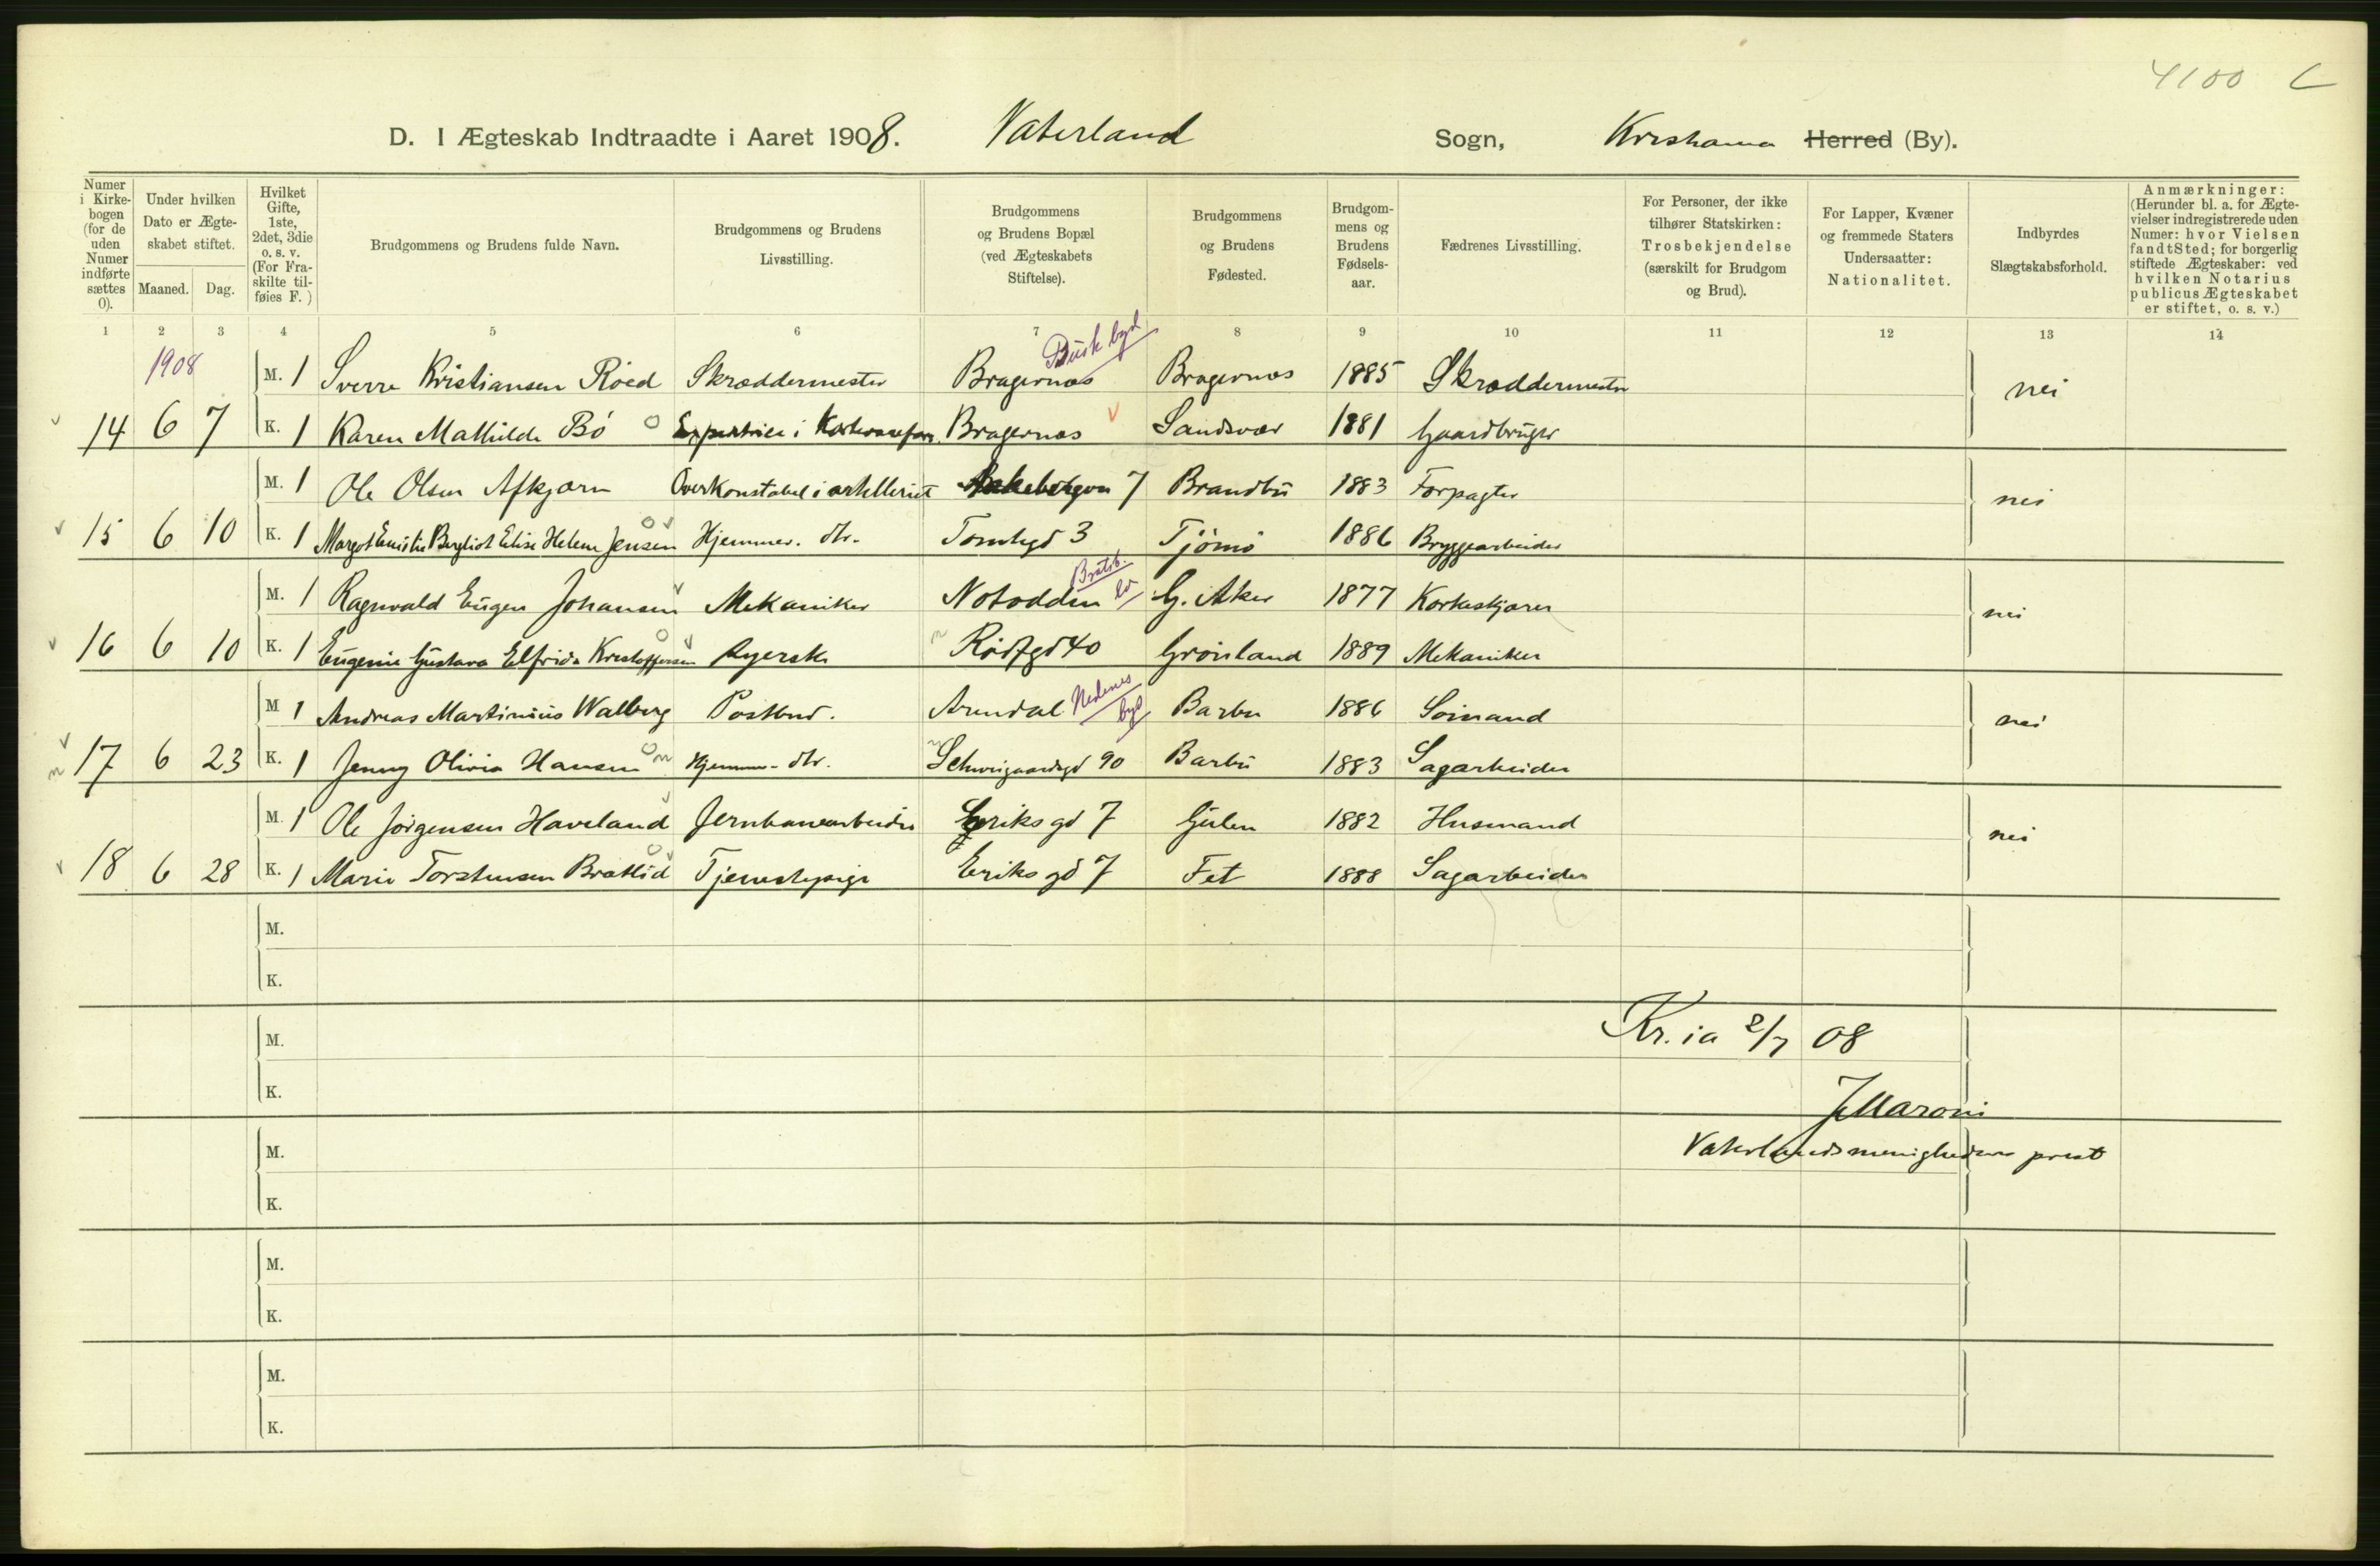 4100 C
D. I Ægteskab Indtraadte i Aaret 1908. Vaterland Sogn, Kristiania Herred (By).
Numer i Kirke-bogen (for de uden Numer indførte sættes 0).
Under hvilken Dato er Ægte-skabet stiftet.
Maaned. Dag.
Hvilket Gifte, 1ste, 2det, 3die o. s. v. (For Fra-skilte til-føies F.)
Brudgommens og Brudens fulde Navn.
Brudgommens og Brudens Livsstilling.
Brudgommens og Brudens Bopæl (ved Ægteskabets Stiftelse).
Brudgommens og Brudens Fødested.
Brudgom-mens og Brudens Fødsels-aar.
Fædrenes Livsstilling.
For Personer, der ikke tilhører Statskirken: Trosbekjendelse (særskilt for Brudgom og Brud).
For Lapper, Kvæner og fremmede Staters Undersaatter: Nationalitet.
Indbyrdes Slægtskabsforhold.
Anmærkninger: (Herunder bl. a. for Ægte-vielser indregistrerede uden Numer: hvor Vielsen fandt Sted; for borgerlig stiftede Ægteskaber: ved hvilken Notarius publicus Ægteskabet er stiftet, o. s. v.)
1 2 3 4 5 6 7 8 9 10 11 12 13 14
1908 M. 1 Sverre Kristiansen Röed Skræddermester Bragernæs Busk byd Bragernæs 1885 Skræddermester nei
14 6 7 K. 1 Karen Mathilde Bö Bragernæs Sandsvær 1881 Gaardbruger
M. 1 Ole Olsen Afkjærn Overkonstabel i artilleriet 7 Brandbu 1883 Forpagter nei
15 6 10 K. 1 Margot Emilie Bergliot Elise Helene Jensen Hjemmev. dtr. Tomtegd 3 Tjömö 1886 Bryggearbeider
M. 1 Ragnvald Eugen Johansen Mekaniker Notodden Bratsb. G. Aker 1877 Korkeskjærer nei
16 6 10 K. 1 Eugenie Gustava Elfrida Kristoffersen Syerske 40 Grönland 1889 Mekaniker
M 1 Andreas Martinius Walberg Postbud. Arendal Nedenes byd Barbu 1886 Sömand nei
17 6 23 K. 1 Jenny Olivia Hansen Hjemmev. dtr. Schweigaardsgd 90 Barbu 1883 Sagarbeider
M. 1 Ole Jörgensen Haveland Jernbanearbeider Eriks gd 7 Gulen 1882 Husmand nei
18 6 28 K. 1 Marie Torstensen Bratlid Tjenestepige Eriks gd 7 Fet 1888 Sagarbeider
M.
K.
M. Kr.ia 2/7 08
K. J Maroni
M. Vaterlandsmenighedens prest
K.
M.
K.
M.
K.